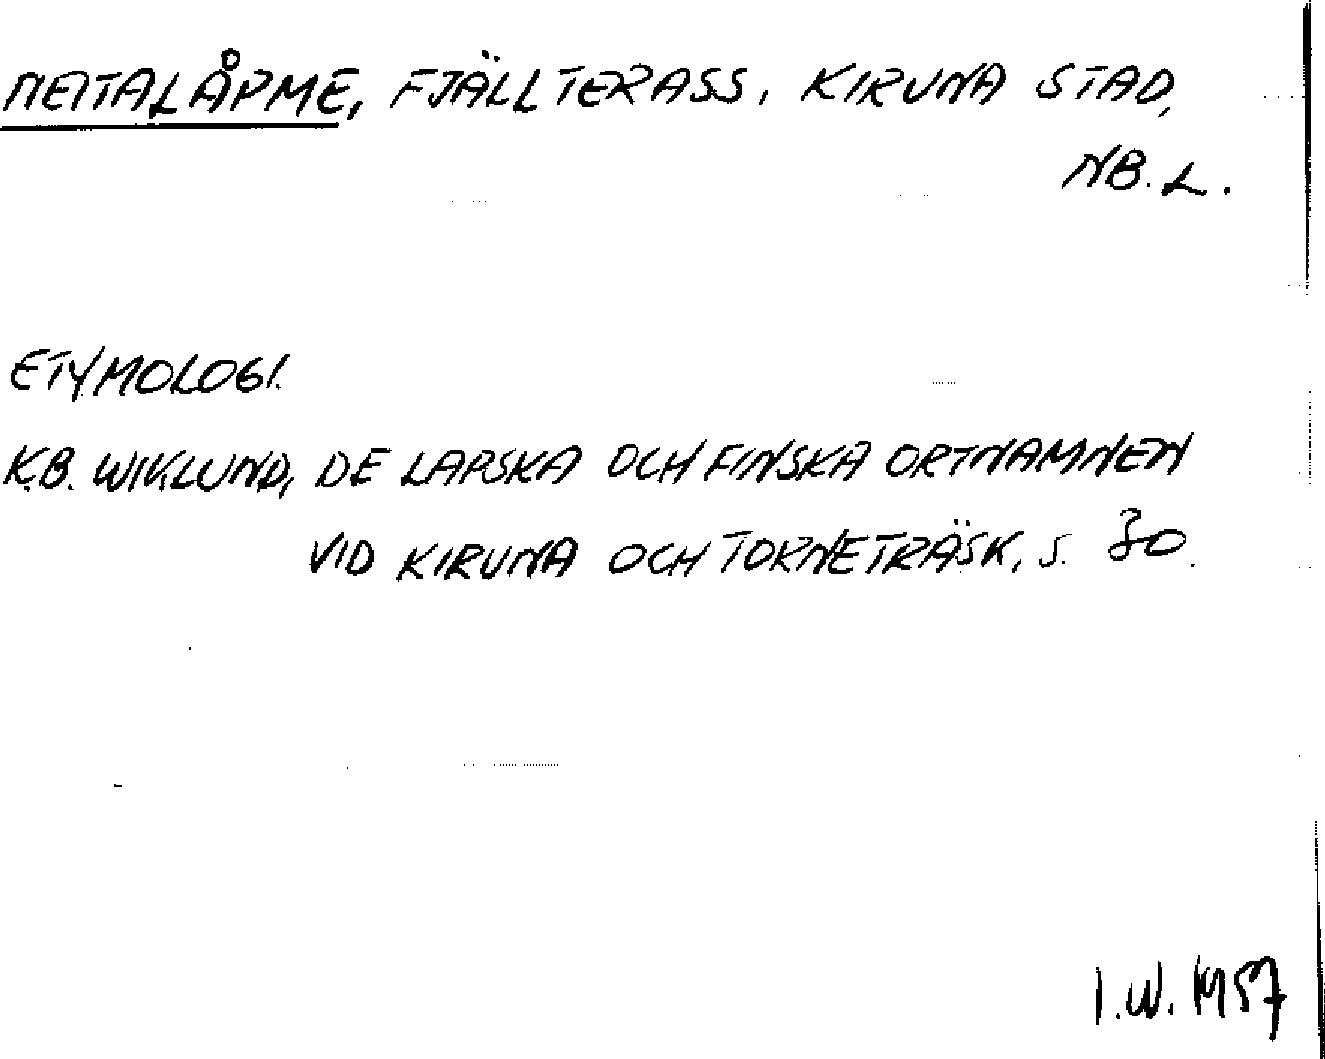 NEITALÅPME, FJÄLLTERASS, KIRUNA STAD,
NB. L.
ETYMOLOGI.
K.B. WIKLUND, DE LAPSKA OCH FINSKA ORTNAMNEN
VID KIRUNA OCH TORNETRÄSK, S. 80.
I.W. 1957